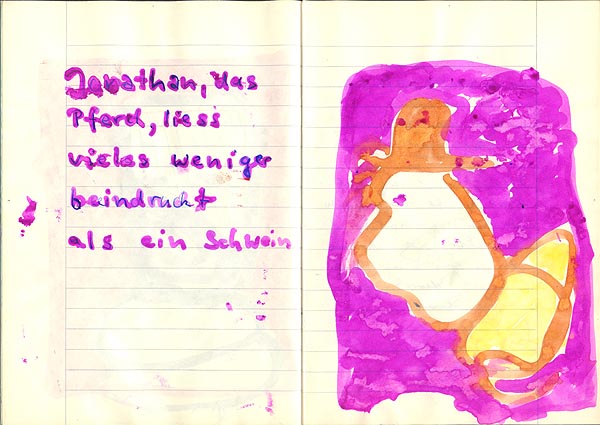 Jonathan, das
Pferd, liess
vieles weniger
beindruckt
als ein Schwein